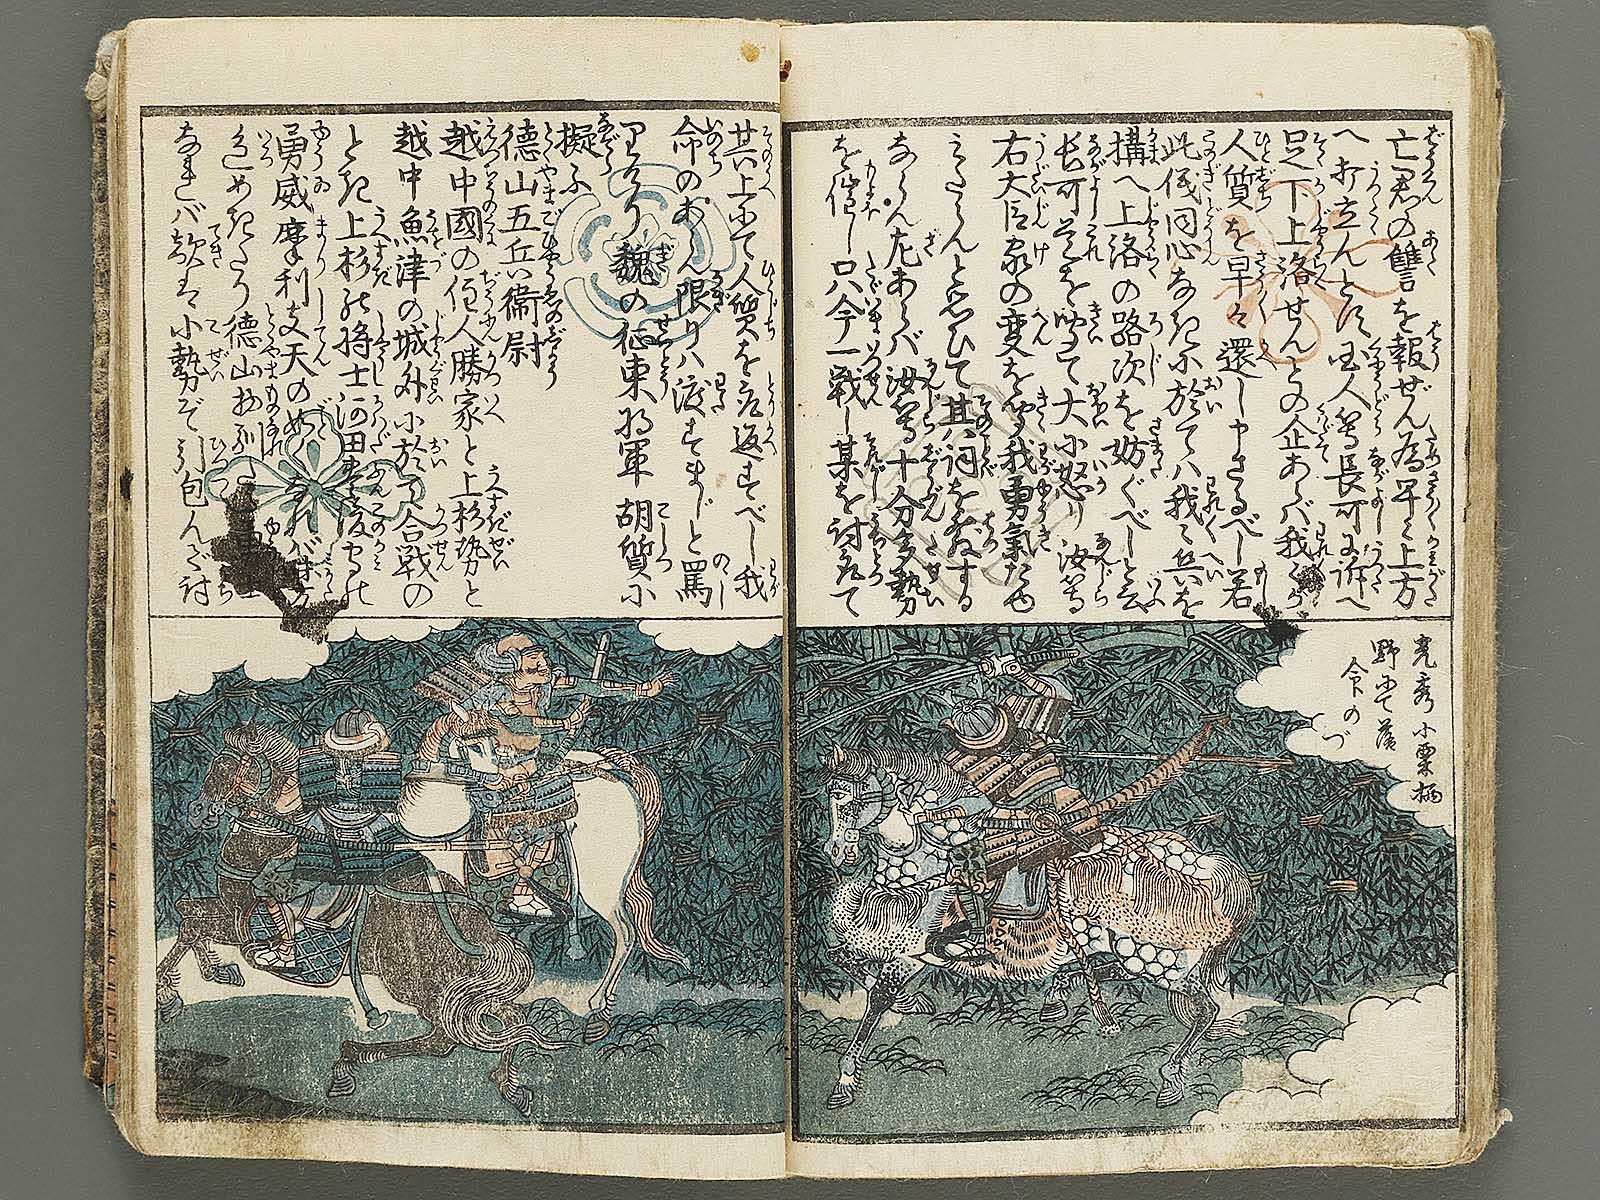 亡君の讐を報ぜん為早々上方
へ打立んとに国人等長可に訴へ
足下上洛せんとの企あらバ我々が
人質を早々還しやさるべし若
此儀同心なきに於てハ我々兵を
構へ上洛の路次を妨ぐべしと云
長可是を聞て大小怒り汝等
右大臣家の変を聞我勇氣たゆ
みたらんと思ひて其詞を発する
ならん左あらバ汝等十分多勢
を催し只今一戦し某を討取て
其上にて人質を取返すべし我
命のあらん限りハ渡すまじと罵
りたり魏の征東将軍胡質に
擬ふ
徳山五兵衞尉
越中國の住人勝家と上杉勢と
越中魚津の城外に於て合戦の
とき上杉の将士河田
勇威摩利支天の
色めきたり徳山
なれバ敵は小勢ぞ引包んで討
光秀小栗栖
野にて落
命のづ